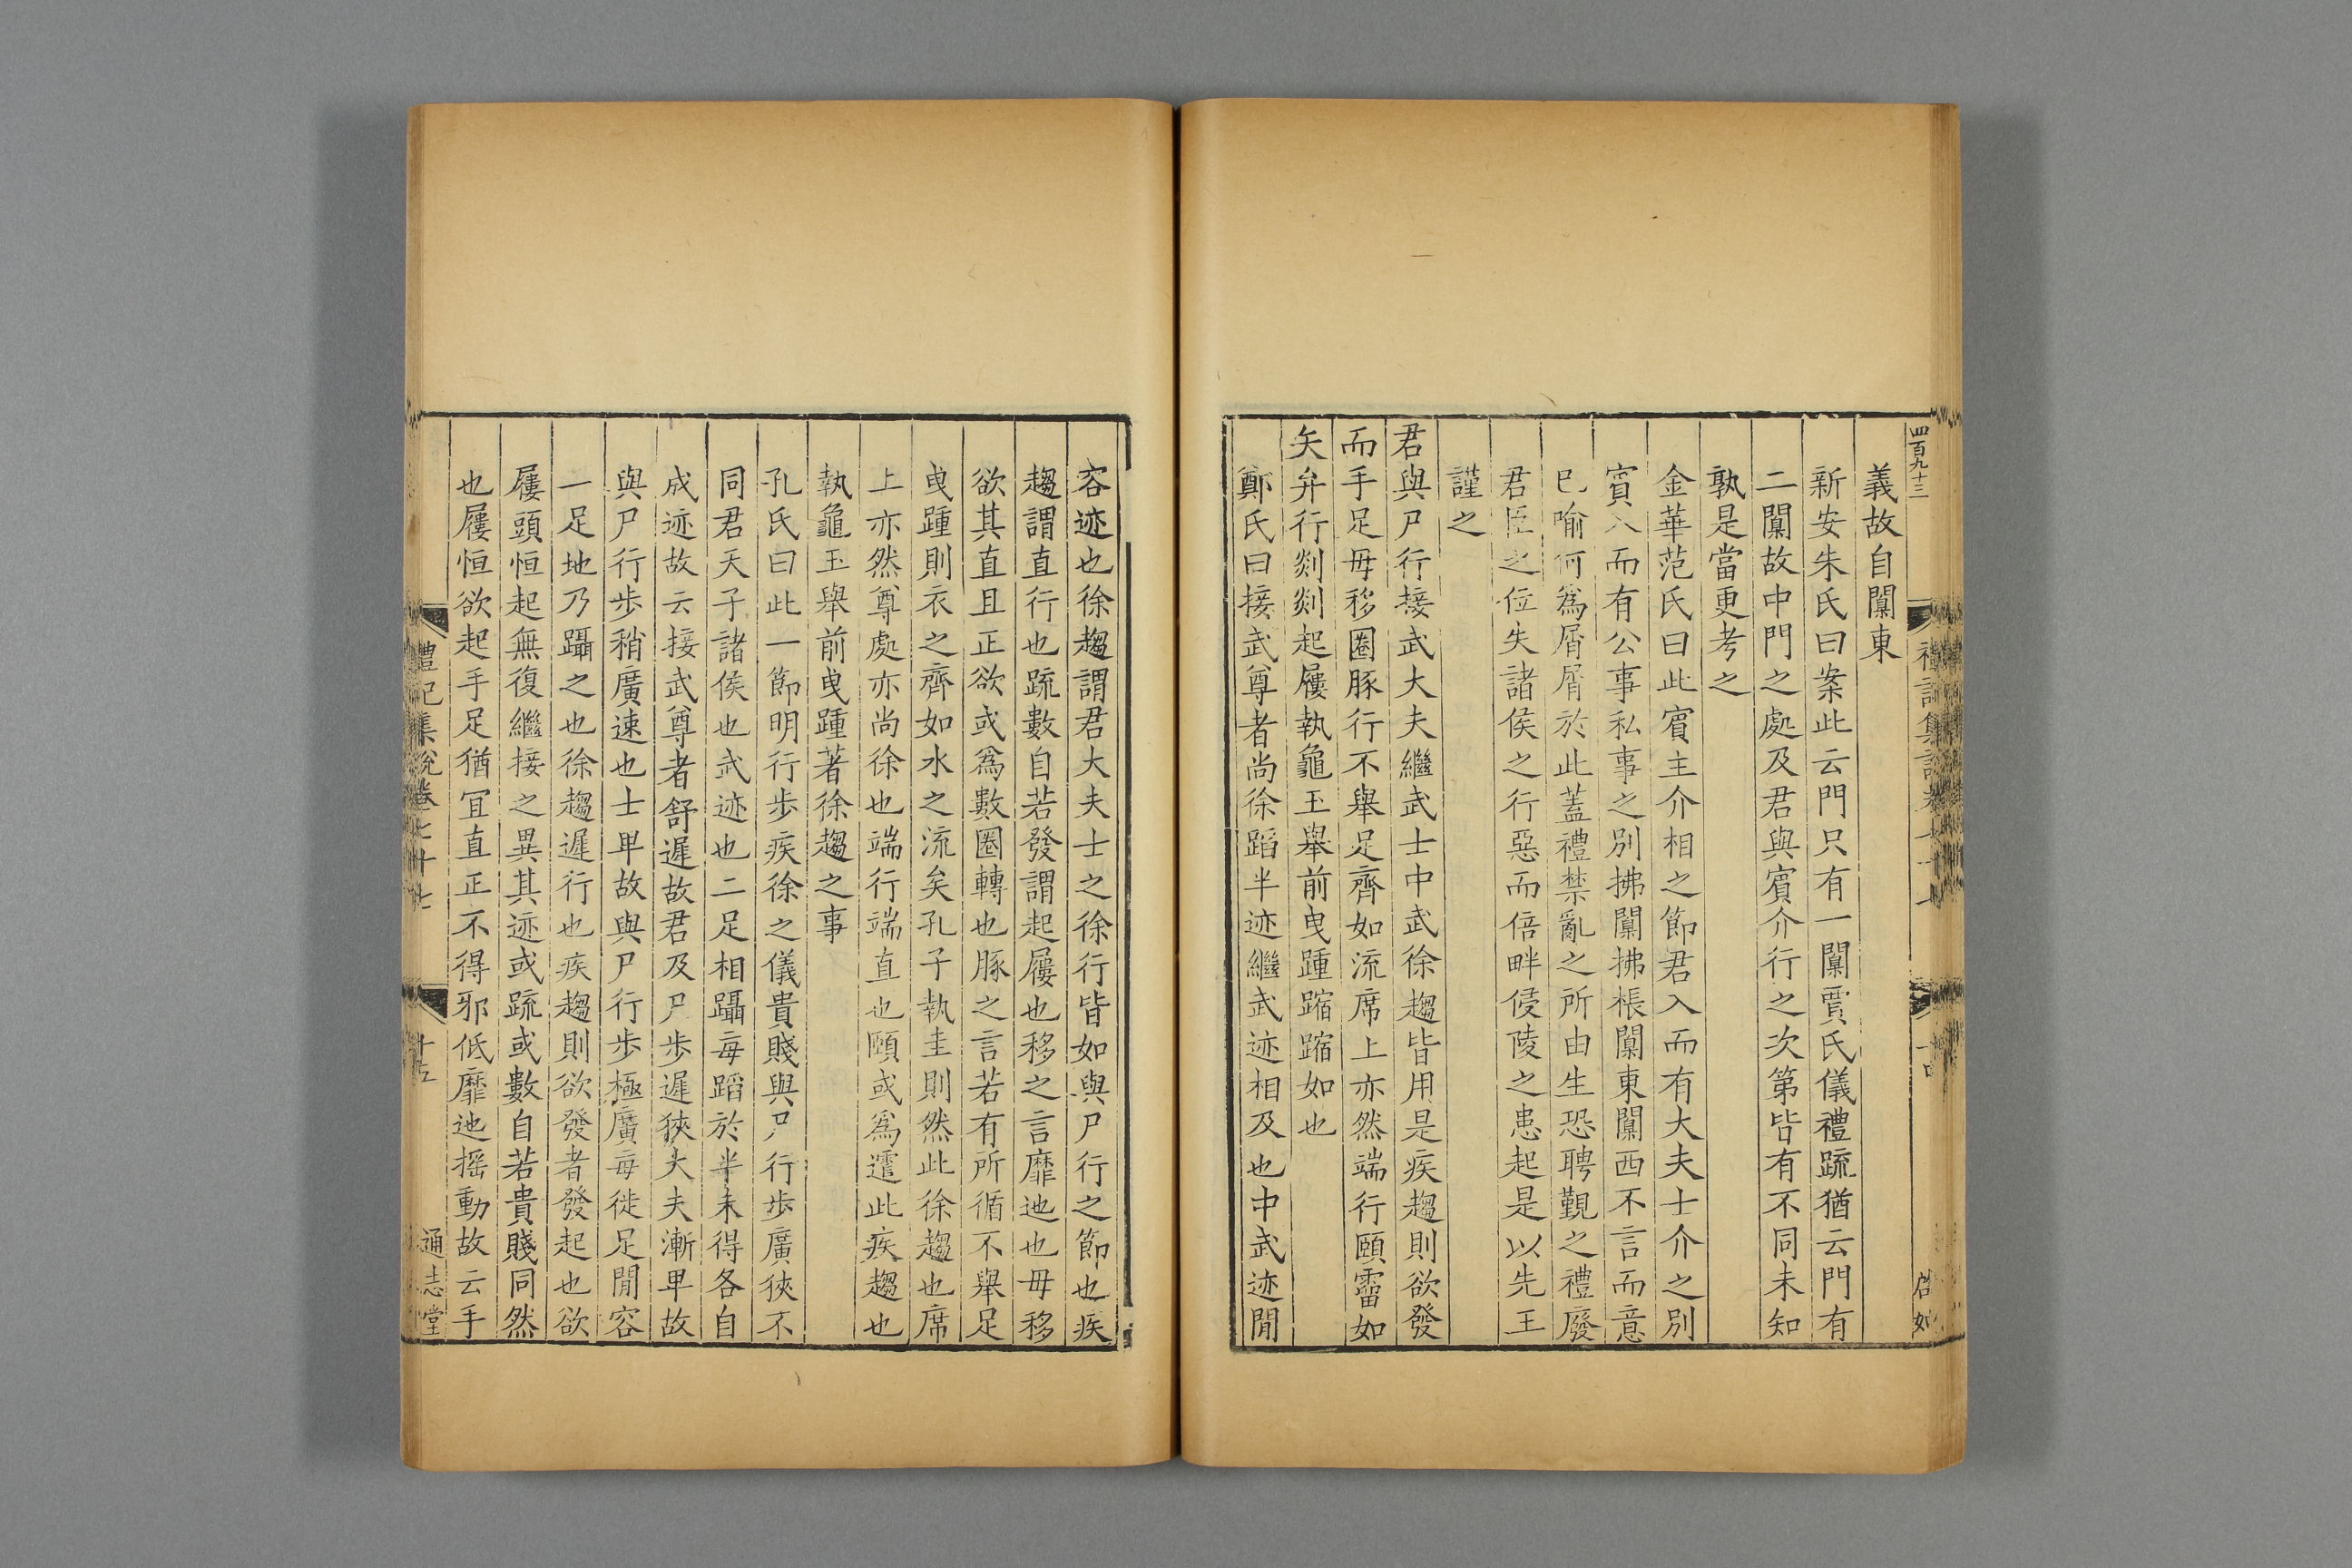 四百九十三
義故自闑東
新安朱氏曰案此云門只有一闑賈氏儀禮疏猶云門有
二闑故中門之處及君與賓介行之次第皆有不同未知
孰是當更考之
金華范氏曰此賓主介相之節君入而有大夫士介之別
賓入而有公事私事之別拂闑拂棖闑東闑西不言而意
已喻何爲屑屑於此蓋禮禁亂之所由生恐聘覲之禮廢
君臣之位失諸侯之行惡而倍畔侵陵之患起是以先王
謹之
君與尸行接武大夫繼武士中武徐趨皆用是疾趨則欲發
而手足毋移圈豚行不舉足齊如流席上亦然端行頤霤如
矢弁行剡剡起屨執龜玉舉前曳踵蹜蹜如也
鄭氏曰接武尊者尚徐蹈半迹繼武迹相及也中武迹閒
容迹也徐趨謂君大夫士之徐行皆如與尸行之節也疾
趨謂直行也疏數自若發謂起屨也移之言靡迆也毋移
欲其直且正欲或爲數圈轉也豚之言若有所循不舉足
曳踵則衣之齊如水之流矣孔子執圭則然此徐趨也席
上亦然尊處亦尚徐也端行端直也頤或爲霆此疾趨也
執龜玉舉前曳踵著徐趨之事
孔氏曰此一節明行步疾徐之儀貴賤與尸行步廣狹不
同君天子諸侯也武迹也二足相躡每蹈於半未得各自
成迹故云接武尊者舒遲故君及尸步遲狹大夫漸卑故
與尸行步稍廣速也士卑故與尸行步極廣每徙足閒容
一足地乃躡之也徐趨遲行也疾趨則欲發者發起也欲
屨頭恒起無復繼接之異其迹或疏或數自若貴賤同然
也屨恒欲起手足猶宜直正不得邪低靡迆搖動故云手
禮記集說卷七十七
十五
通志堂